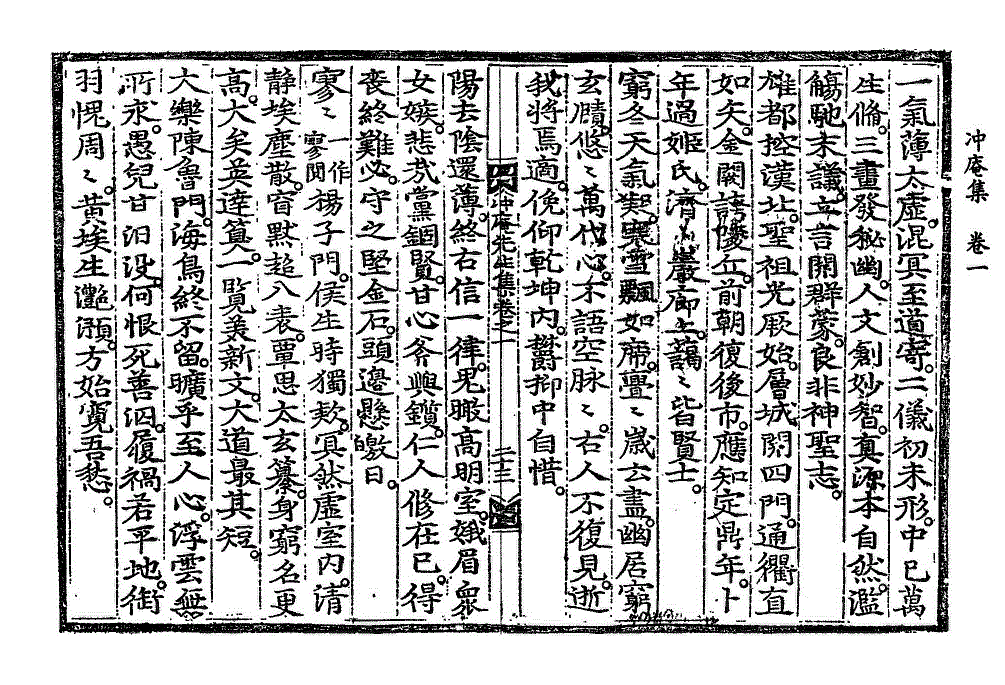 冲庵集　卷一
一氣薄太虛。混冥至道寄。二儀初未形。中已萬
生脩。三畫發秘幽。人文創妙智。眞源本自然。濫
觴馳末議。立言開群蒙。良非神聖志。
雄都控漢址。聖祖光厥始。層城開四門。通衢直
如矢。金闕誇㥄丘。前朝復後市。應知定鼎年。卜
年過姬氏。濟濟巖廊上。藹〻皆賢士。
窮冬天氣慄。寒雪飄如席。亹〻歲云盡。幽居窮
玄賾。悠〻萬代心。不語空脉〻。古人不復見。逝
我將焉適。俛仰乾坤內。欝抑中自惜。
冲庵先生集卷之一　二十三
陽去陰還薄。終古信一律。鬼瞰高明室。娥眉衆
女嫉。悲哉黨錮賢。甘心斧與鑕。仁人修在己。得
喪終難必。守之堅金石。頭邊懸皦日。
寥〻一作寥閴楊子門。侯生時獨欵。冥然虛室內。淸
静埃塵散。窅默超八表。覃思太玄纂。身窮名更
高。大矣英達筭。一覽美新文。大道最其短。
大樂陳魯門。海鳥終不留。曠乎至人心。浮雲無
所求。愚兒甘汨没。何恨死善泅。履禍若平地。銜
羽愧周〻。黃埃生灧澦。方始寬吾愁。